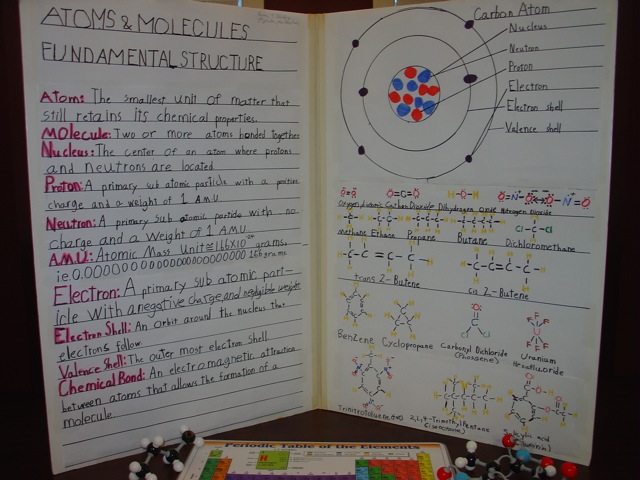 ATOMS & MOLECULES
FUNDAMENTAL STRUCTURE
Atom: The smallest unit of matter that
still retains its chemical properties.
Molecule: Two or more atoms bonded together
Nucleus: The center of an atom where protons
and neutrons are located
Proton: A primary sub atomic particle with a positive
charge and a weight of 1 AMU
Neutron: A primary sub atomic particle with no
charge and a Weight of 1 A.M.U.
A.M.U.: Atomic Mass Unit
grams.
Electron: A primary sub atomic part-
icle with a negative charge and negligible weight
Electron Shell: An orbit around the nucleus that
electrons follow
Valence Shell: The outer most electron shell
Chemical Bond: An electromagnetic attraction
between atoms that allows the formation of a
molecule.
Carbon Atom
Nucleus
Neutron
Proton
Electron
Electron shell
Valence shell
O=O O=C=O H-O-H
Carbon Dioxide Dihydrogen Oxide Nitrogen Dioxide
Methane Ethane Propane Butane Dichloromethane
trans 2-Butene cis 2-Butene
Benzene Cyclopropane Carbonyl Dichloride
(Phosgene)
Uranium
Hexafluoride
Trinitrotoluene (tnt)
2,2,4-Trimethylpentane
acid
Periodic Table of the Elements